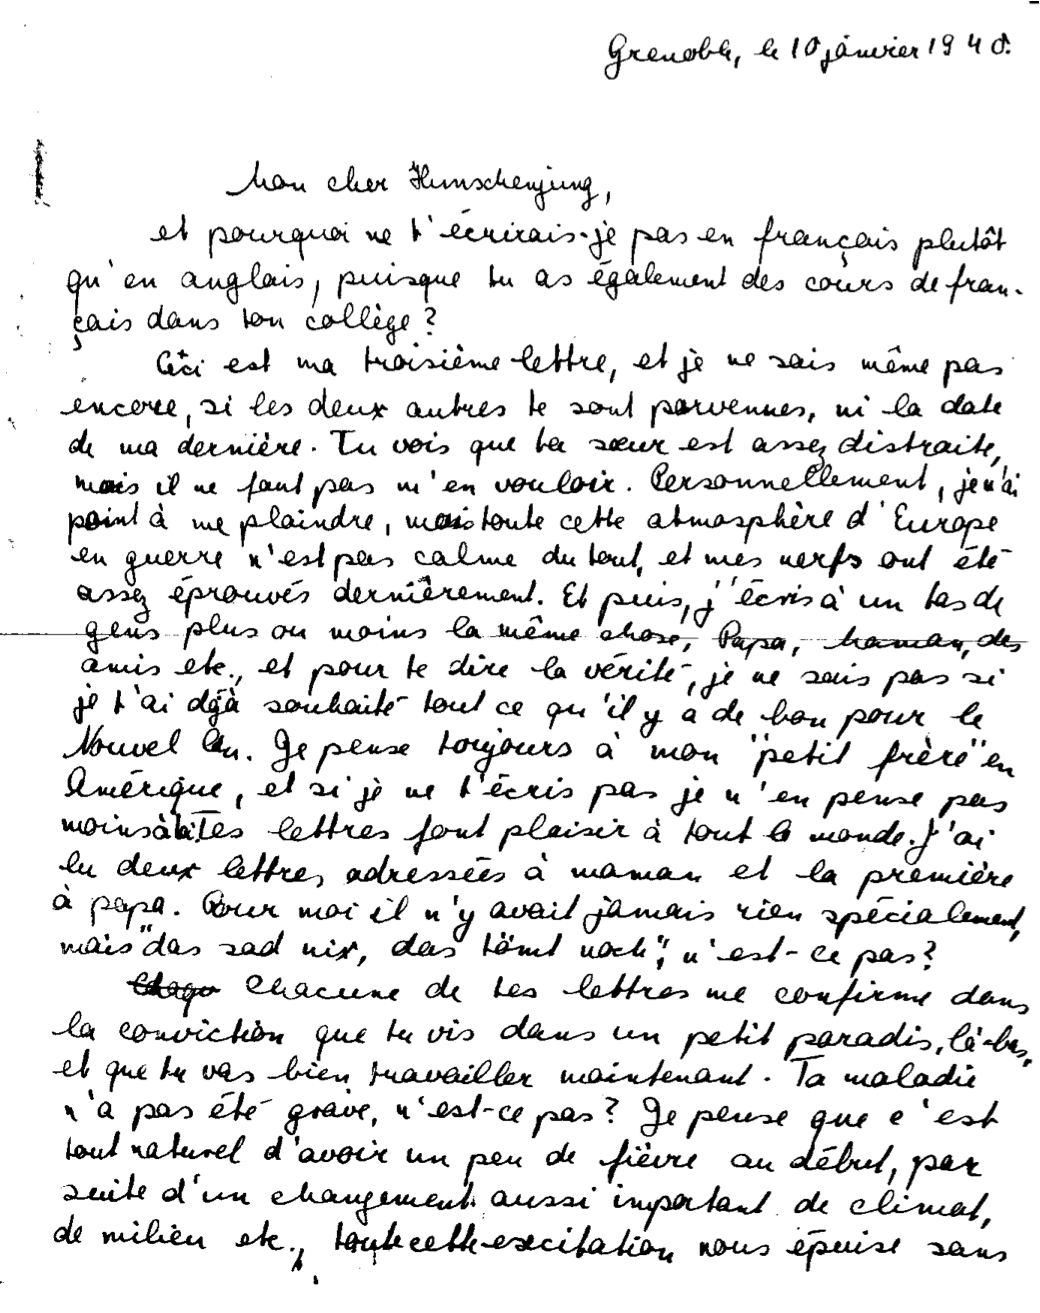 Grenoble, le 10 janvier 1940.
Mon cher Hunschenjung,
et pourquoi ne t'écrirais-je pas en français plutôt
qu'en anglais, puisque tu as également des cours de fran-
çais dans ton collège?
Ceci est ma troisième lettre, et je ne sais même pas
encore, si les deux autres te sont parvenues, ni la date
de ma dernière. Tu vois que ta sœur est assez distraite,
mais il ne faut pas m'en vouloir. Personnellement, je n'ai
point à me plaindre, mais toute cette atmosphère d'Europe
en guerre n'est pas calme du tout, et mes nerfs ont été
assez éprouvés dernièrement. Et puis, j'écris à un tas de
gens plus ou moins la même chose, Papa, Maman, des
amis etc., et pour te dire la vérité, je ne sais pas si
je t'ai déjà souhaité tout ce qu'il y a de bon pour le
Nouvel An. Je pense toujours à mon "petit frère" en
Amérique, et si je ne t'écris pas je n'en pense pas
moins à toi. Tes lettres font plaisir à tout le monde. J'ai
lu deux lettres adressées à maman et la première
à papa. Pour moi il n'y avait jamais rien spécialement,
mais "das sad nix, das tömt noch", n'est-ce pas?
Chacune de tes lettres me confirme dans
la conviction que tu vis dans un petit paradis, là-bas,
et que tu vas bien travailler maintenant. Ta maladie
n'a pas été grave, n'est-ce pas? Je pense que c'est
tout naturel d'avoir un peu de fièvre au début, par
suite d'un changement aussi important de climat,
de milieu etc., toute cette excitation nous épuise sans